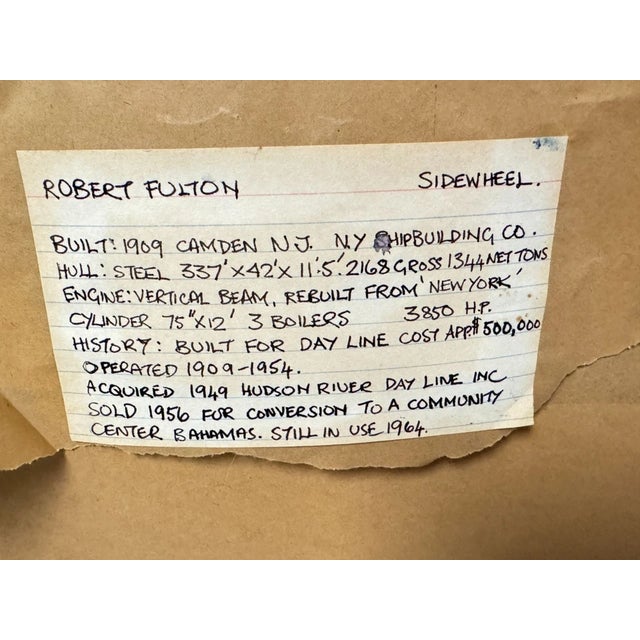 ROBERT FULTON SIDEWHEEL.
BUILT: 1909 CAMDEN N.J. NY SHIPBUILDING CO.
HULL: STEEL 337'X42'X 11'.5'. 2168 GROSS 1344 NET TONS
ENGINE: VERTICAL BEAM, REBUILT FROM 'NEW YORK'
CYLINDER 75"X12' 3 BOILERS 3850 H.P.
HISTORY: BUILT FOR DAY LINE COST APP. $500,000
OPERATED 1909-1954.
ACQUIRED 1949 HUDSON RIVER DAY LINE INC
SOLD 1956 FOR CONVERSION TO A COMMUNITY
CENTER BAHAMAS. STILL IN USE 1964.